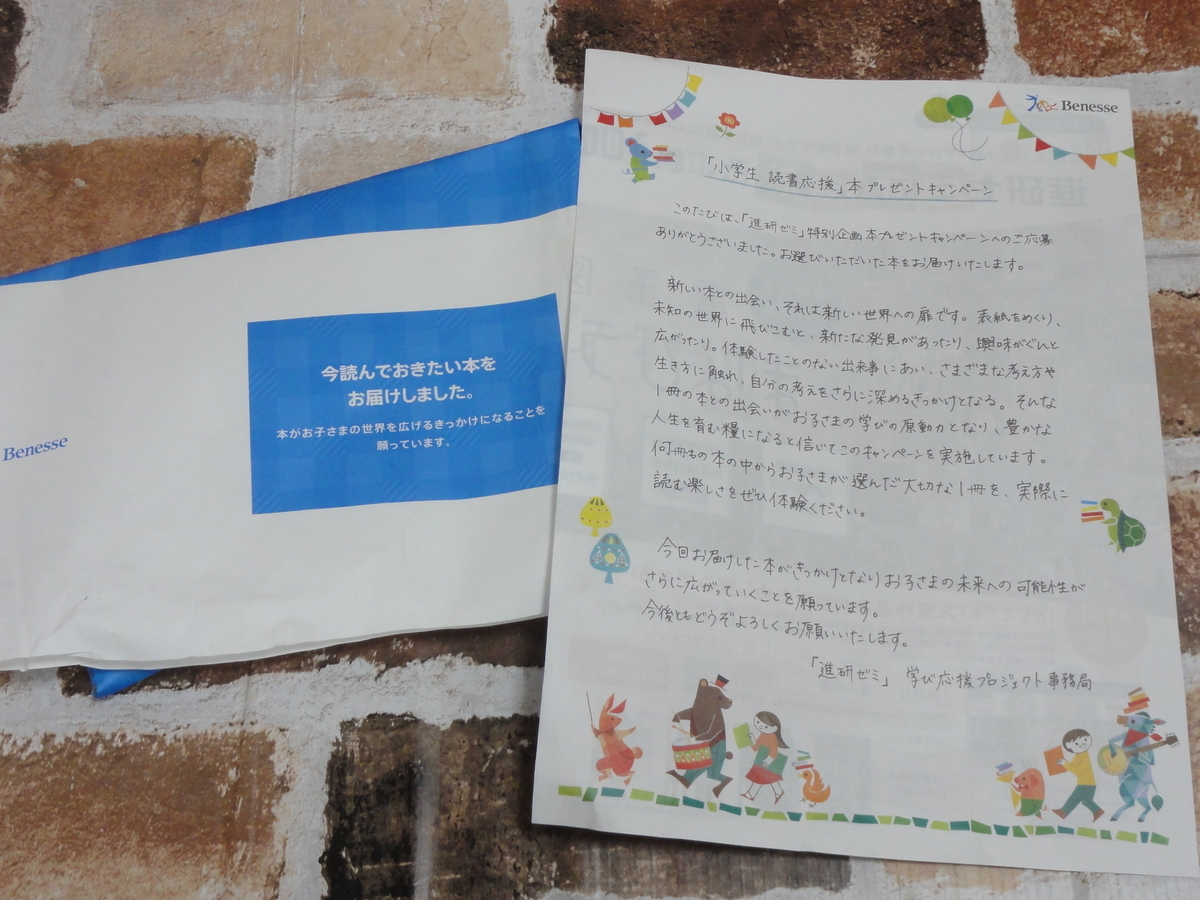 Benesse
今読んでおきたい本を
お届けしました。
本がお子さまの世界を広げるきっかけになることを
願っています。
Benesse
「小学生 読書応援」本プレゼントキャンペーン
このたびは、「進研ゼミ」特別企画本プレゼントキャンペーンへのご応募
ありがとうございました。お選びいただいた本をお届けいたします。
新しい本との出会い、それは新しい世界への扉です。表紙をめくり、
未知の世界に飛びこむと、新たな発見があったり、興味がぐんと
広がったり。体験したことのない出来事にあい、さまざまな考え方や
生き方に触れ、自分の考えをさらに深めるきっかけとなる。そんな
1冊の本との出会いがお子さまの学びの原動力となり、豊かな
人生を育む糧になると信じてこのキャンペーンを実施しています。
何冊もの本の中からお子さまが選んだ大切な1冊を、実際に
読む楽しさをぜひ体験ください。
今回お届けした本がきっかけとなりお子さまの未来への可能性が
さらに広がっていくことを願っています。
今後ともどうぞよろしくお願いいたします。
「進研ゼミ」 学び応援プロジェクト事務局